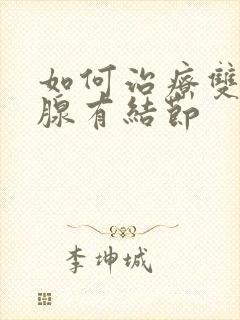 如何治療雙
腺有結節
李坤城